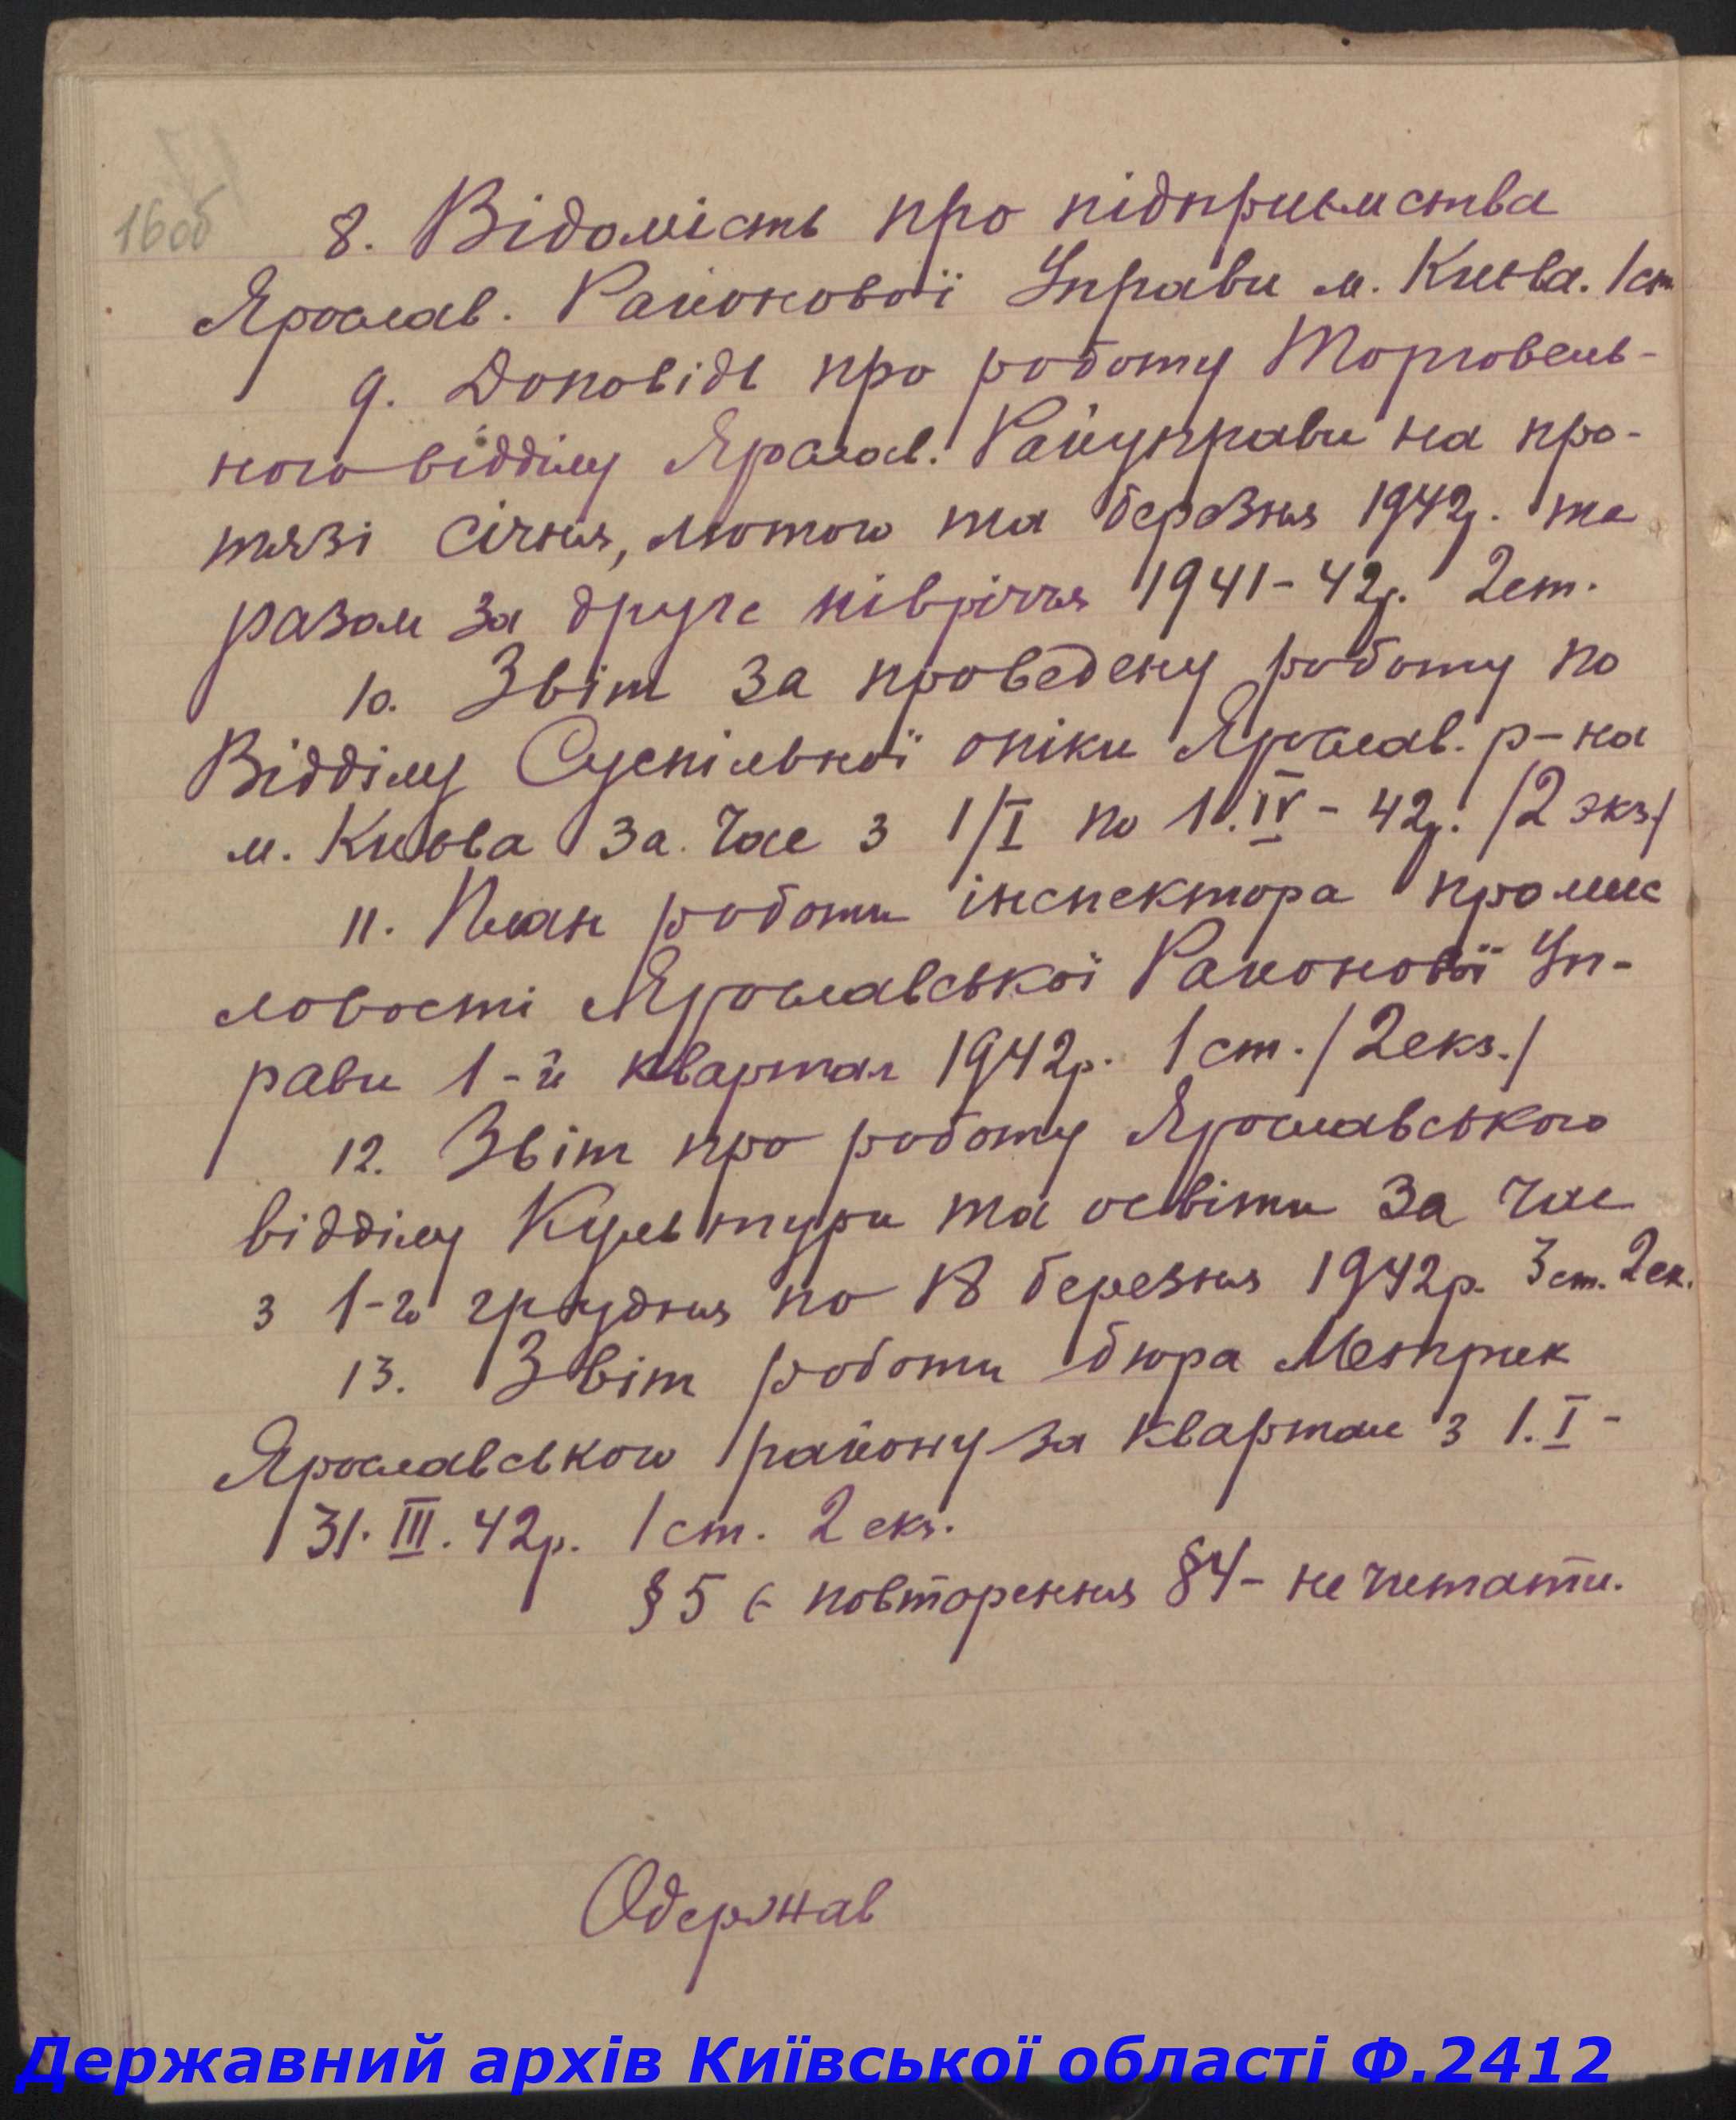 16об
8. Відомість про підприємства
Ярослав. Районової Управи м. Києва. 1 ст.
9. Доповідь про роботу Торговель-
ного відділу Ярослав. Райуправи на про-
тязі січня, лютого та березня 1942р. та
разом за друге півріччя 1941-42р. 2 ст.
10. Звіт за проведену роботу по
Відділу Суспільної опіки Ярослав. р-на
м. Києва за час з 1/I по 1.IV - 42р. /2 экз./
11. План роботи інспектора промис
ловости Ярославської Районової Уп-
рави 1-й квартал 1942р. 1 ст. /2 екз./
12. Звіт про роботу Ярославського
відділу Культури та освіти за час
з 1-го грудня по 18 березня 1942р. 3 ст. 2 ек.
13. Звіт роботи бюра Метрик
Ярославського району за квартал з 1.I -
31.III.42р. 1 ст. 2 екз.
§ 5 є повторення § 4 - не читати.
Одержав
Державний архів Київської області Ф.2412